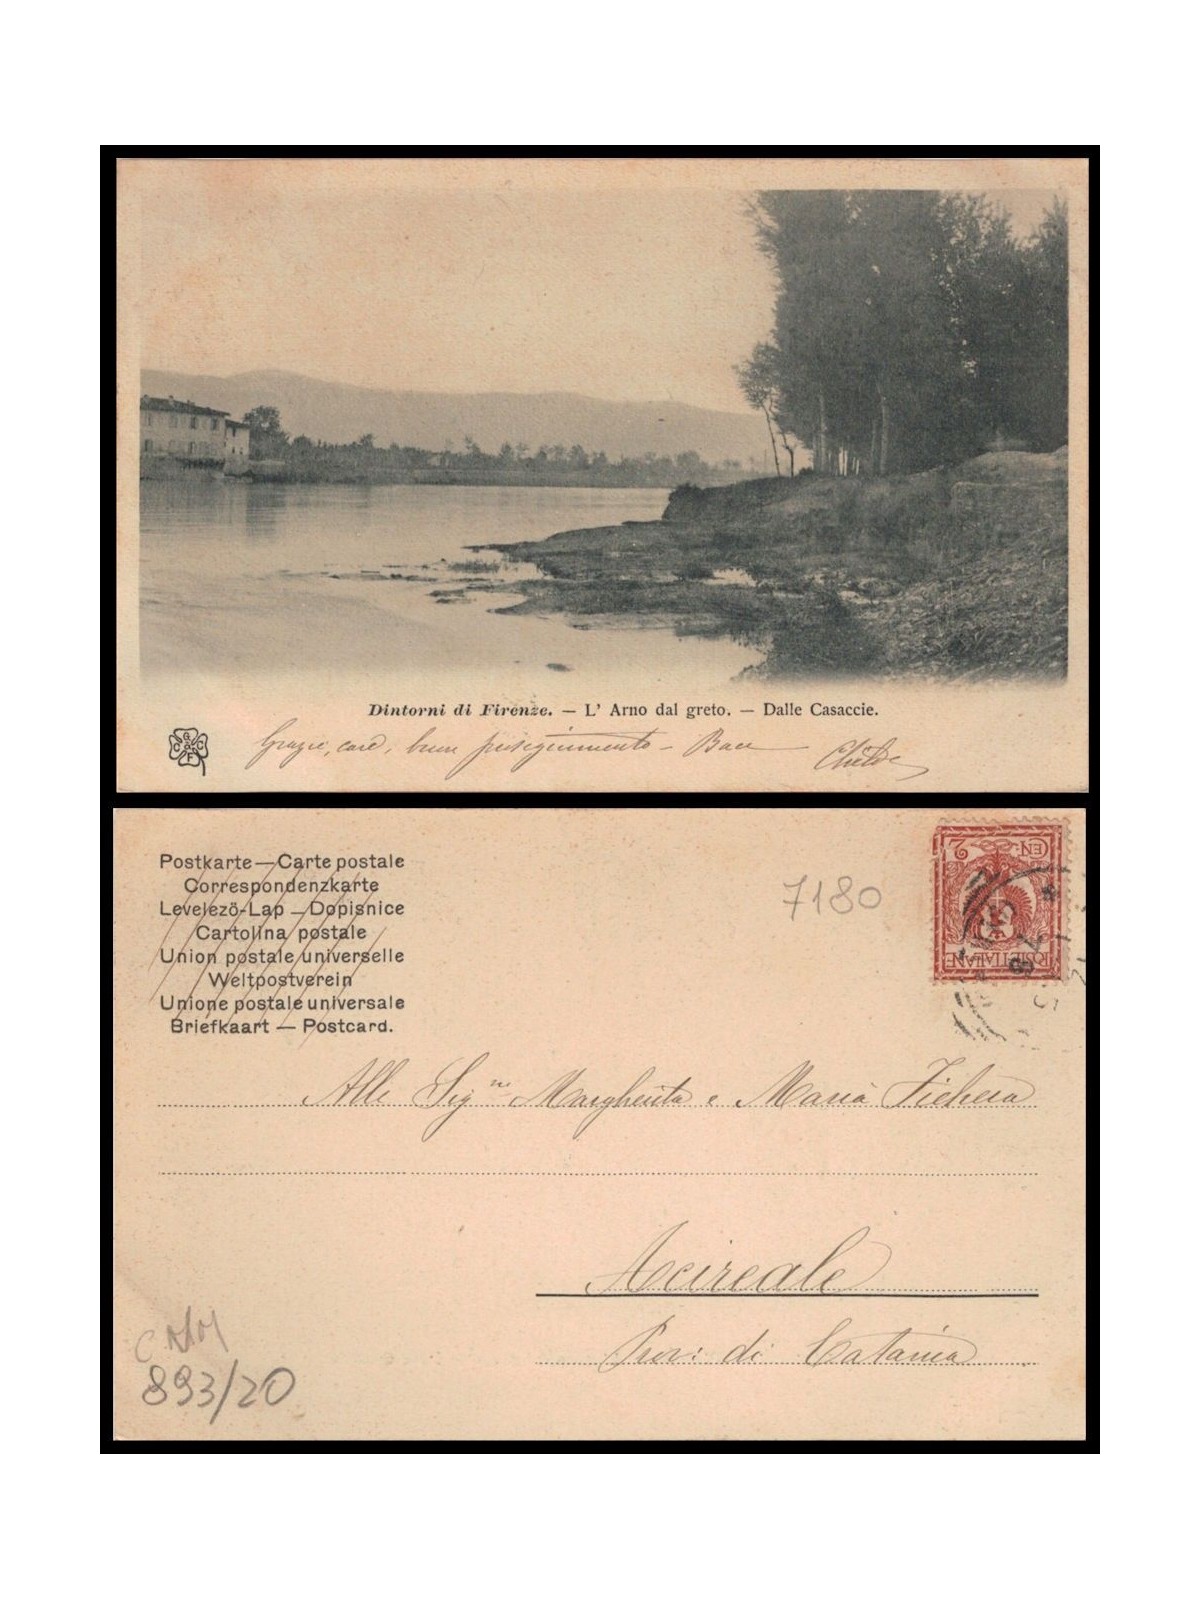 Dintorni di Firenze. — L' Arno dal greto. — Dalle Casaccie.
G C C F
Grazie, care, buon proseguimento — Baci
Postkarte — Carte postale
Correspondenzkarte
Levelezö-Lap — Dopisnice
Cartolina postale
Union postale universelle
Weltpostverein
Unione postale universale
Briefkaart — Postcard.
7180
CEN 2
POSTE ITALIANE
Alle Sig.ne Margherita e Maria Fichera
Acireale
Prov: di Catania
893/20